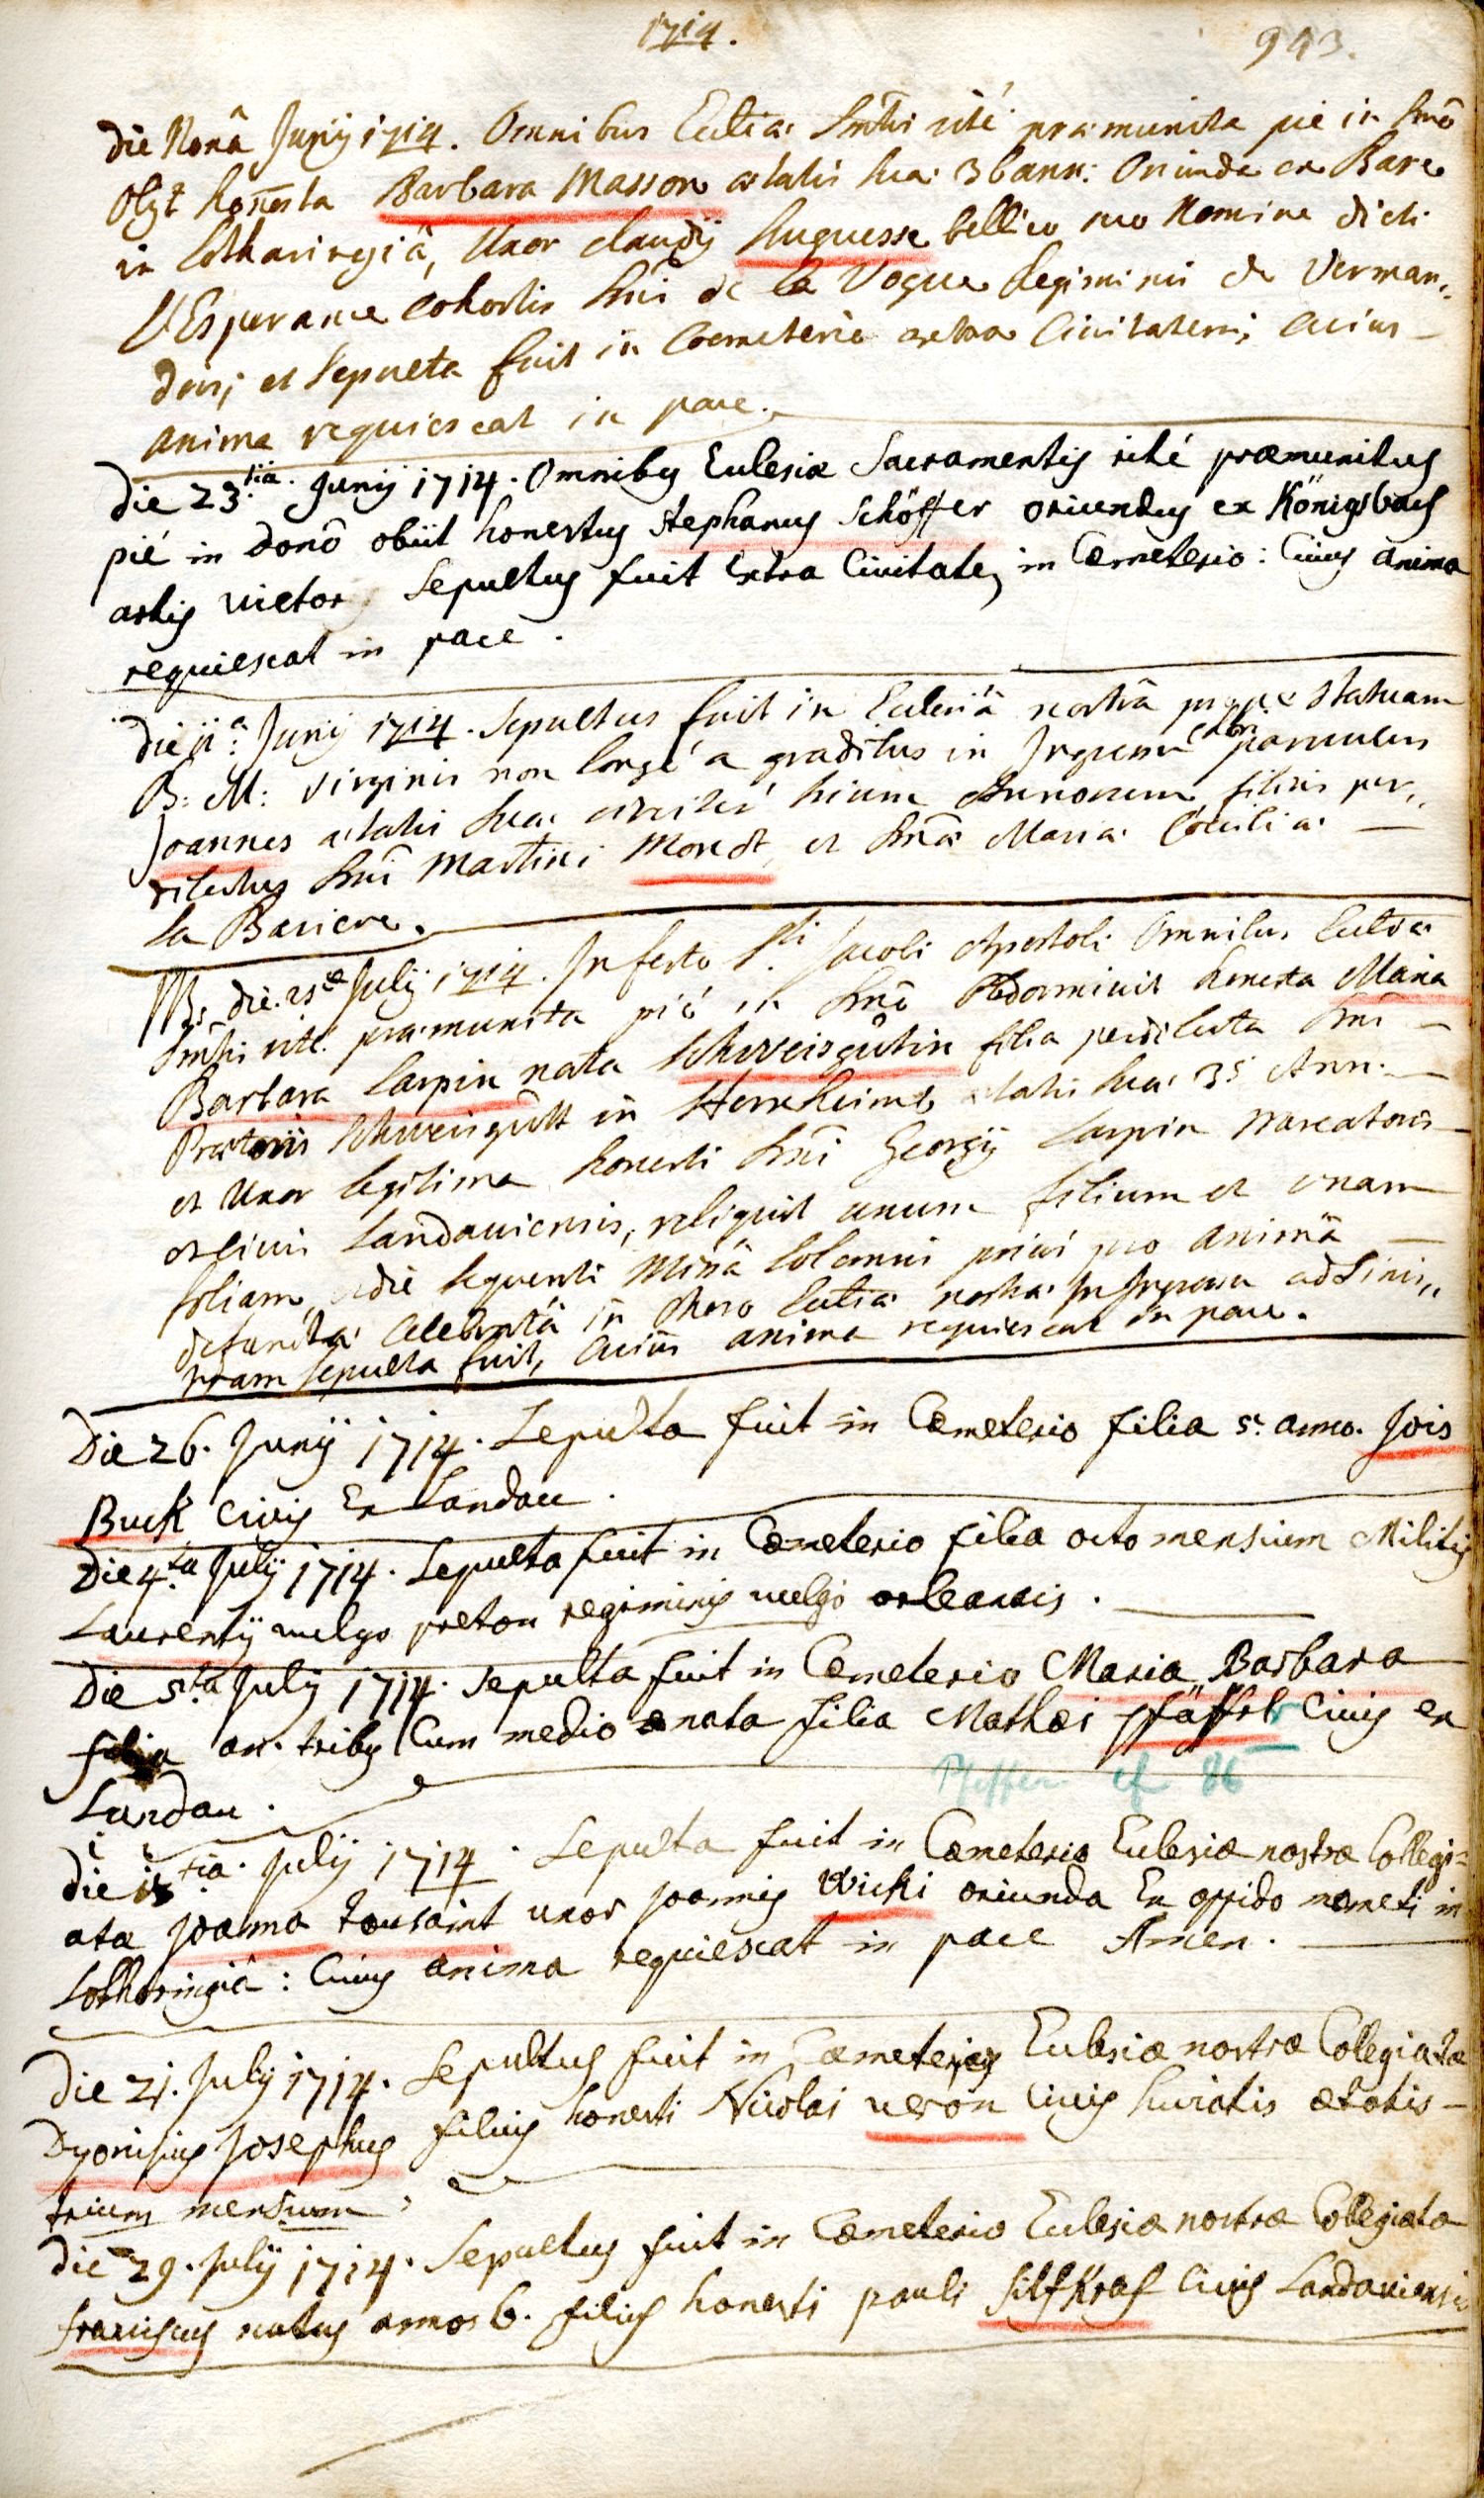 1714.
943.
die Nonâ Junij 1714. Omnibus Eccliæ Smtis rité præmunita pie in Dnô
obijt honesta Barbara Masson ætatis suæ 36 ann: Oriunda ex Bare
in Lotharingiâ, Uxor Claudij Huguesse bellico suo Nomine dicti
L'Esperance cohortis Dni de la Vogue Regiminis de Verman„
dois; et Sepulta fuit in Coemeterio extra Civitatem; Cuius
anima requiescat in pace.
die 23.tia Junij 1714. Omnibus Ecclesiæ Sacramentis rité præmunitus
pié in Domô obiit honestus Stephanus Schöffer oriundus ex Königsbach
artis vietor, Sepultus fuit Extra Civitatem in Cæmeterio: Cuius anima
requiescat in pace.
die 11.a Junij 1714. Sepultus fuit in Ecclesiâ nostrâ prope statuam
B: M: Virginis non longé a gradibus in Ingressu chori parvulus
Joannes ætatis suæ circiter trium Annorum, filius per„
dilectus Dni Martini Mondt, et Dnæ Mariæ Cœciliæ
la Bariere.
NB: die 25.a Julij 1714. In festo S.ti Jacobi Apostoli Omnibus Eccliæ
Smtis rité præmunita pié in Dnô Obdormivit honesta Maria
Barbara Carpin nata Schweisgûtin filia perdilecta Dni
Prætoris Schweisgûtt in Herxheimb, ætatis suæ 35 Ann.
et Uxor legitima honesti Dni Georgij Carpin Mercatoris
et civis Landaviensis, reliquit unum filium et unam
filiam, die sequenti Missâ Solemni priùs pro animâ
defunctæ Celebratâ in Choro Eccliæ nostræ In Ingressu ad Sinis„
tram sepulta fuit, Cuius anima requiescat in pace.
Die 26. Junij 1714. Sepulta fuit in Cæmeterio filia 5. anno. Jois
Buck Civis Ex Landau.
Die 4.ta Julij 1714. Sepulta fuit in Cæmeterio filia octo mensium Militis
Laurentij vulgo preton regiminis vulgo orleanais.
Die 5.ta Julij 1714. Sepulta fuit in Cæmeterio Maria Barbara
filia an. tribus Cum medio nata filia Mathæi Pfäffer Civis ex
Pfeffer cf 86
Landau.
die 13.tia Julij 1714. Sepulta fuit in Cæmeterio Ecclesiæ nostræ Collegi=
atæ Joanna Tousaint uxor Joannis Wicki oriunda Ex oppido nameti in
Lotharingiâ: Cuius anima requiescat in pace Amen.
Die 21. Julij 1714. Sepultus fuit in Cæmeterio Ecclesiæ nostræ Collegiatæ
Dyonisius Josephus filius honesti Nicolai veron Civis huiatis ætatis
trium mensium.
Die 29. Julij 1714. Sepultus fuit in Cæmeterio Ecclesiæ nostræ Collegiatæ
franciscus natus annos 6. filius honesti pauli Silfkraf Civis Landaviensis